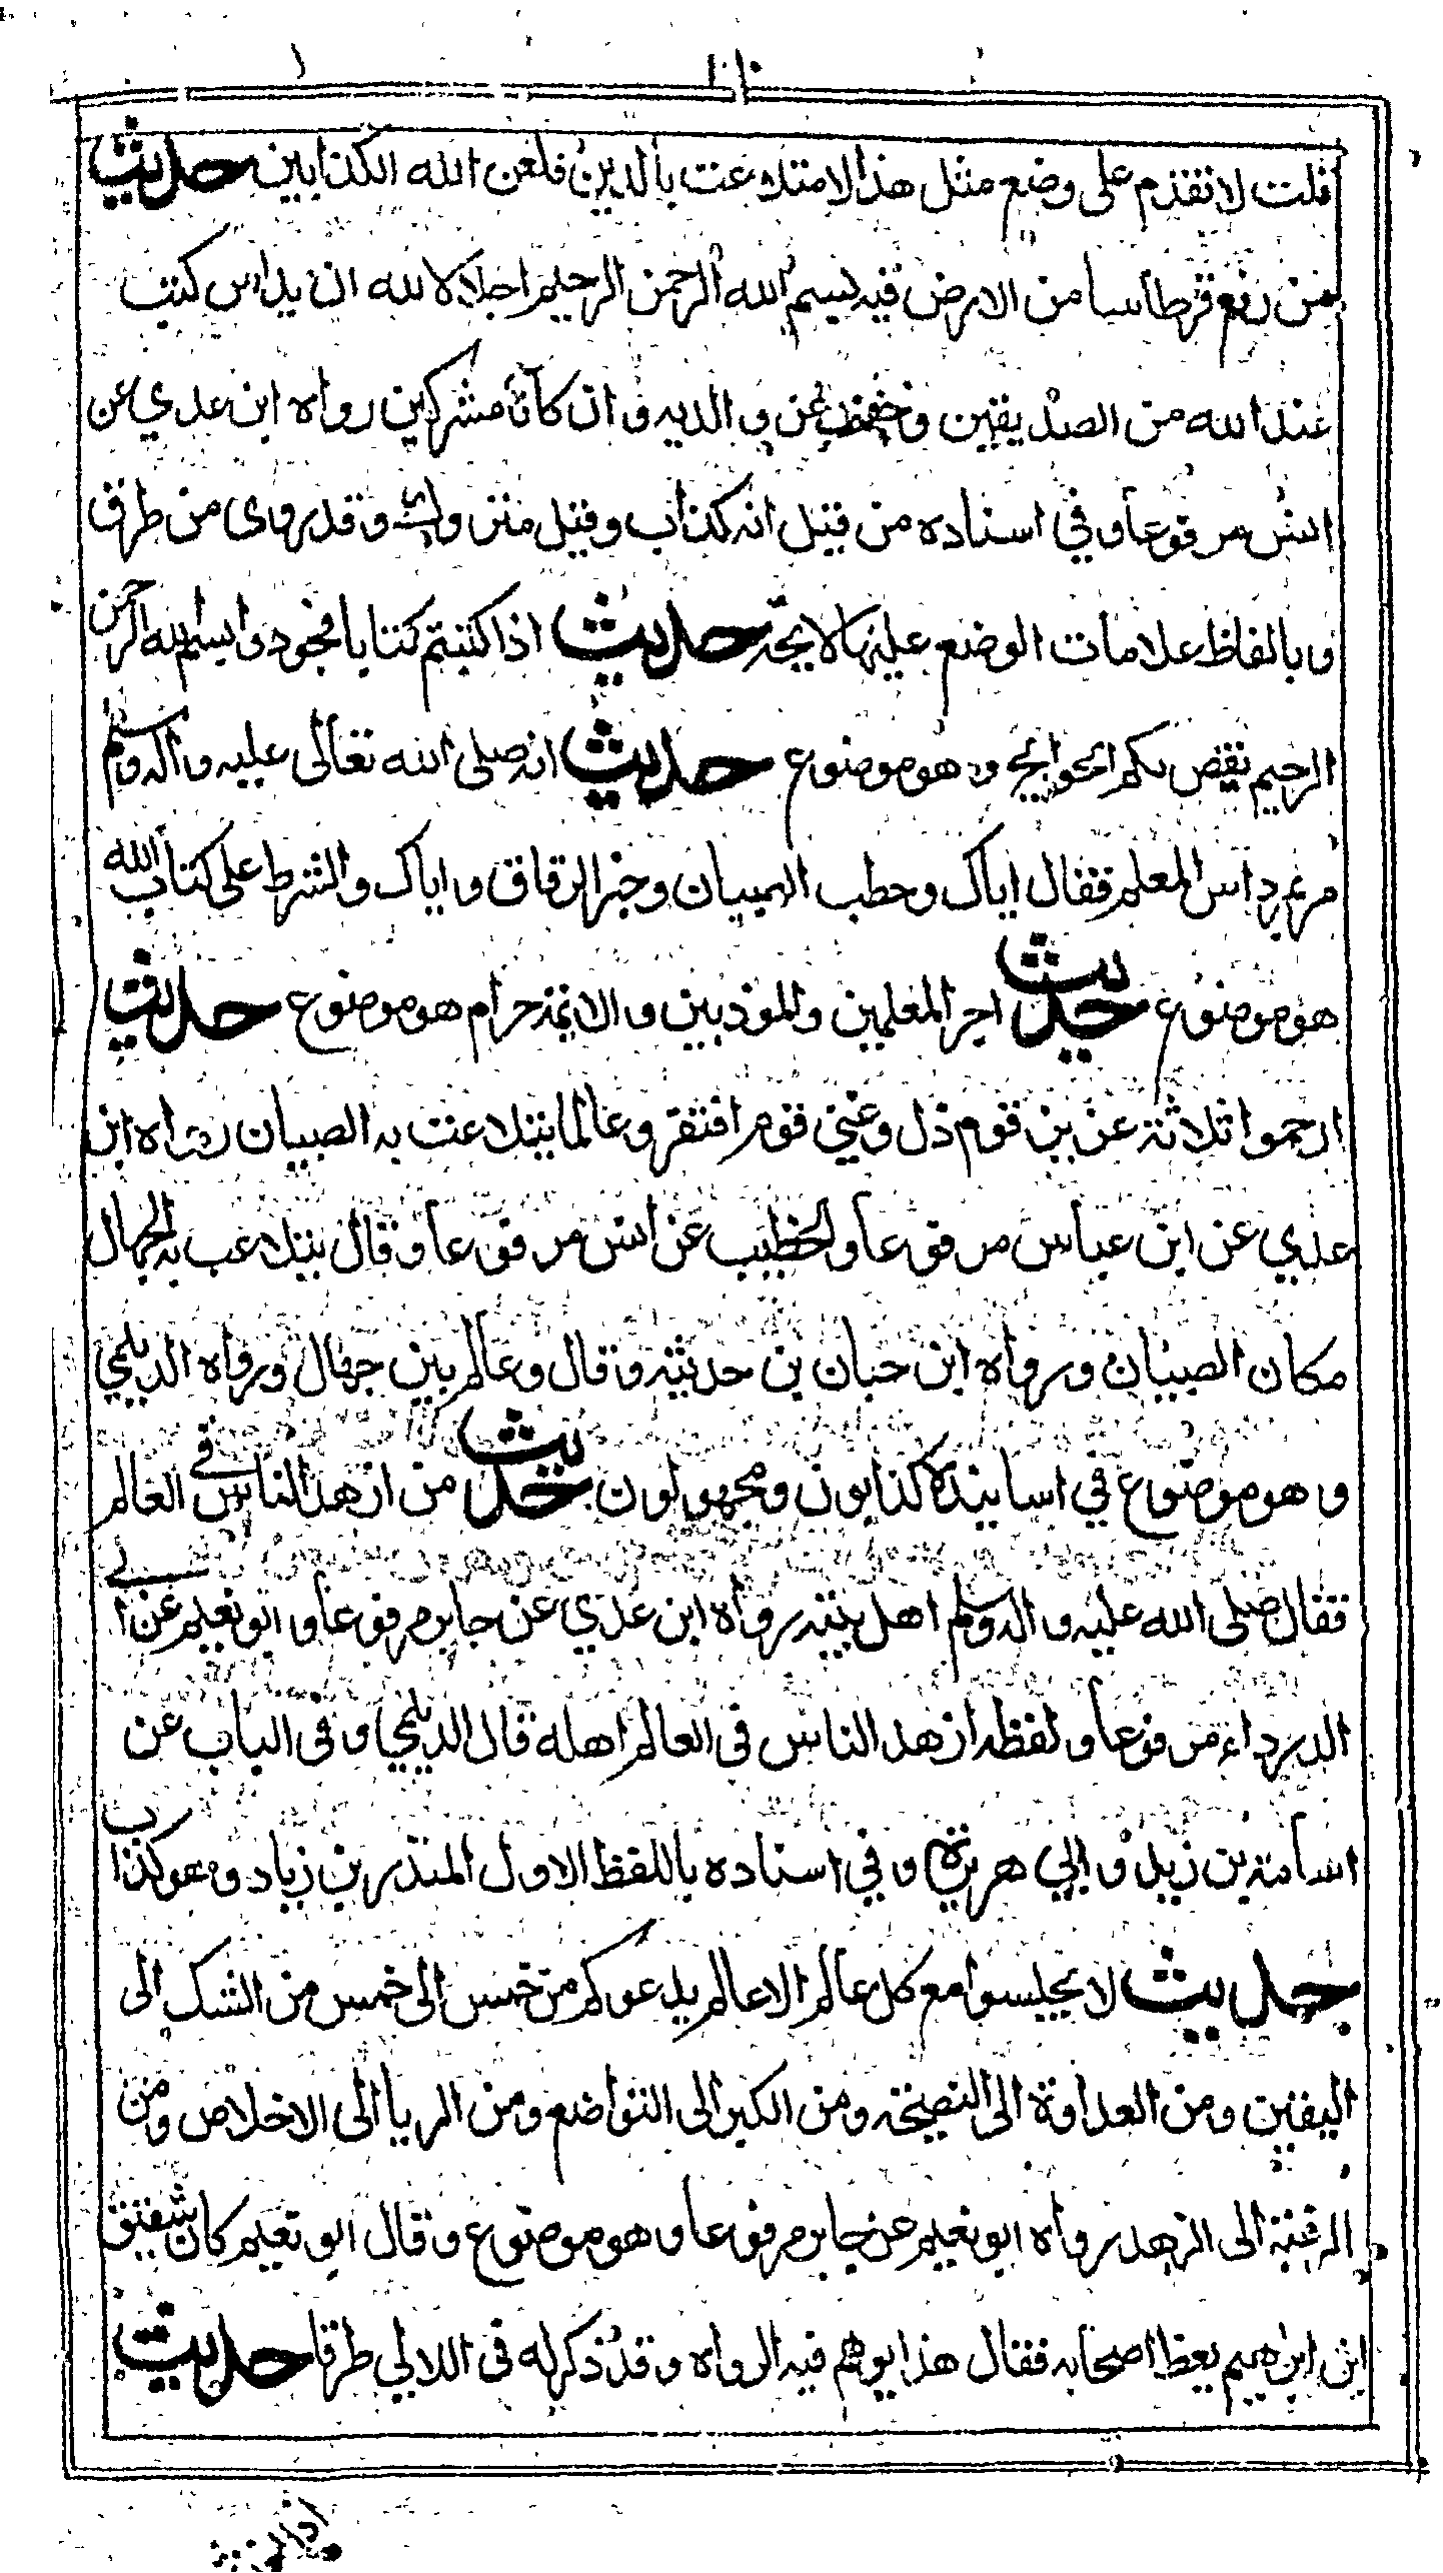 قلت لا تقدم على وضع مثل هذا الامتلاعنت بالدين فلعن الله الكذابين حديث
من رفع قرطاسا من الارض فيه بسم الله الرحمن الرحيم اجلالا لله ان يداس كتب
عند الله من الصديقين وخفف عن والديه وان كانا مشركين رواه ابن عدي عن
انس مرفوعا وفي اسناده من قيل انه كذاب وقيل متن وليث وقد روى من طرق
وبالفاظ علامات الوضع عليها لايحة حديث اذا كتبتم كتابا فجودوا بسم الله الرحمن
الرحيم تقض لكم الحوايج وهو موضوع حديث انه صلى الله تعالى عليه وآله وسلم
مر بمرداس المعلم فقال اياك وحطب الصبيان وخبز الرقاق واياك والشرط على كتاب الله
هو موضوع حديث اجر المعلمين والموذبين والائمة حرام هو موضوع حديث
ارحموا ثلاثة عزيز قوم ذل وغني قوم افتقر وعالما يتلاعب به الصبيان رواه ابن
عدي عن ابن عباس مرفوعا والخطيب عن انس مرفوعا وقال يتلاعب به الجهال
مكان الصبيان ورواه ابن حبان من حديثه وقال وعالم بين جهال ورواه الديلمي
وهو موضوع في اسانيده كذابون ومجهولون حديث من ازهد الناس في العالم
فقال صلى الله عليه واله وسلم اهل بيته رواه ابن عدي عن جابر مرفوعا وابو نعيم عن ابي
الدرداء مرفوعا ولفظه ازهد الناس في العالم اهله قال الديلمي وفي الباب عن
اسامة بن زيد وابي هريرة وفي اسناده باللفظ الاول المنذر بن زياد وهو كذاب
حديث لا تجلسوا مع كل عالم الا عالم يدعوكم من خمس الى خمس من الشك الى
اليقين ومن العداوة الى النصيحة ومن الكبر الى التواضع ومن الريا الى الاخلاص ومن
الرغبة الى الزهد رواه ابو نعيم عن جابر مرفوعا وهو موضوع وقال ابو نعيم كان شقيق
ابن ابرهيم يعظ اصحابه فقال هذا يوهم فيه الرواه وقد ذكر له في اللالي طرقا حديث